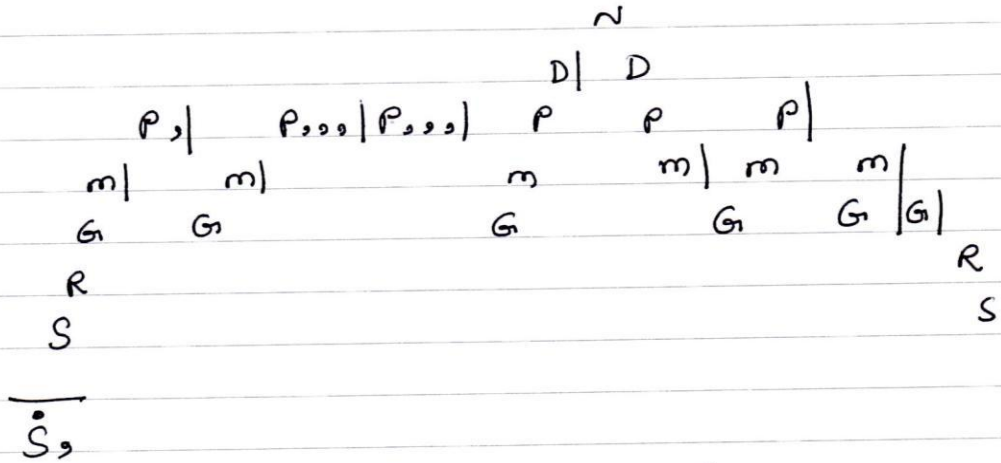 N
D| D
P,| P,,,|P,,,| P P P|
m| m| m m| m m
G G G G G |G|
R R
S S
Ṡ,